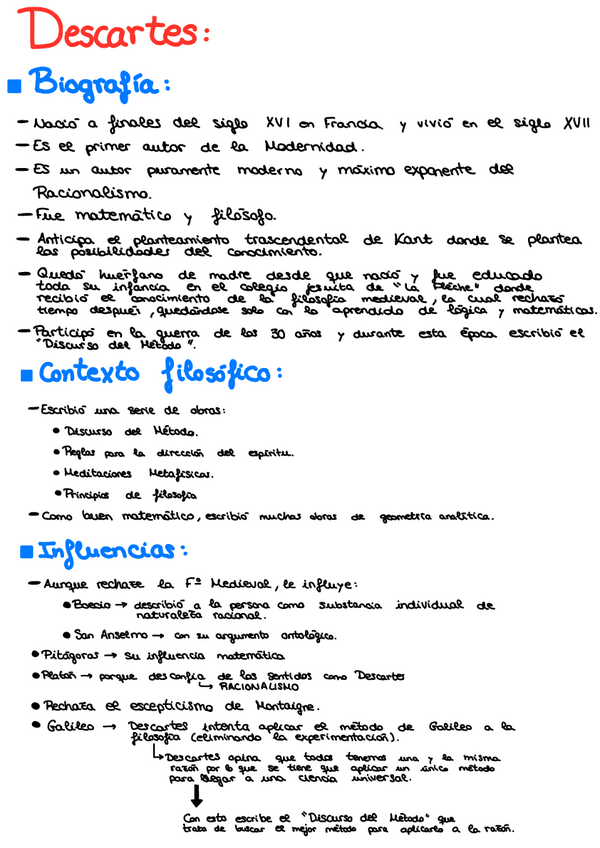 Descartes:
Biografía:
- Nació a finales del siglo XVI en Francia y vivió en el siglo XVII
- Es el primer autor de la Modernidad.
- Es un autor puramente moderno y máximo exponente del
Racionalismo.
- Fue matemático y filósofo.
- Anticipa el planteamiento trascendental de Kant donde se plantea
las posibilidades del conocimiento.
- Quedó huérfano de madre desde que nació y fue educado
toda su infancia en el colegio jesuita de "La Flèche" donde
recibió el conocimiento de la filosofía medieval, la cual rechazó
tiempo después, quedándose solo con lo aprendido de lógica y matemáticas.
- Participó en la guerra de los 30 años y durante esta época escribió el
"Discurso del Método".
Contexto filosófico:
- Escribió una serie de obras:
• Discurso del Método.
• Reglas para la dirección del espíritu.
• Meditaciones Metafísicas.
• Principios de filosofía
- Como buen matemático, escribió muchas obras de geometría analítica.
Influencias:
- Aunque rechace la Fª Medieval, le influye:
• Boecio → describió a la persona como substancia individual de
naturaleza racional.
• San Anselmo → con su argumento ontológico.
• Pitágoras → su influencia matemática
• Platón → porque desconfía de los sentidos como Descartes
↳ RACIONALISMO
• Rechaza el escepticismo de Montaigne.
• Galileo → Descartes intenta aplicar el método de Galileo a la
filosofía (eliminando la experimentación).
↳ Descartes opina que todos tenemos una y la misma
razón por lo que se tiene que aplicar un único método
para llegar a una ciencia universal.
Con esto escribe el "Discurso del Método" que
trata de buscar el mejor método para aplicarlo a la razón.